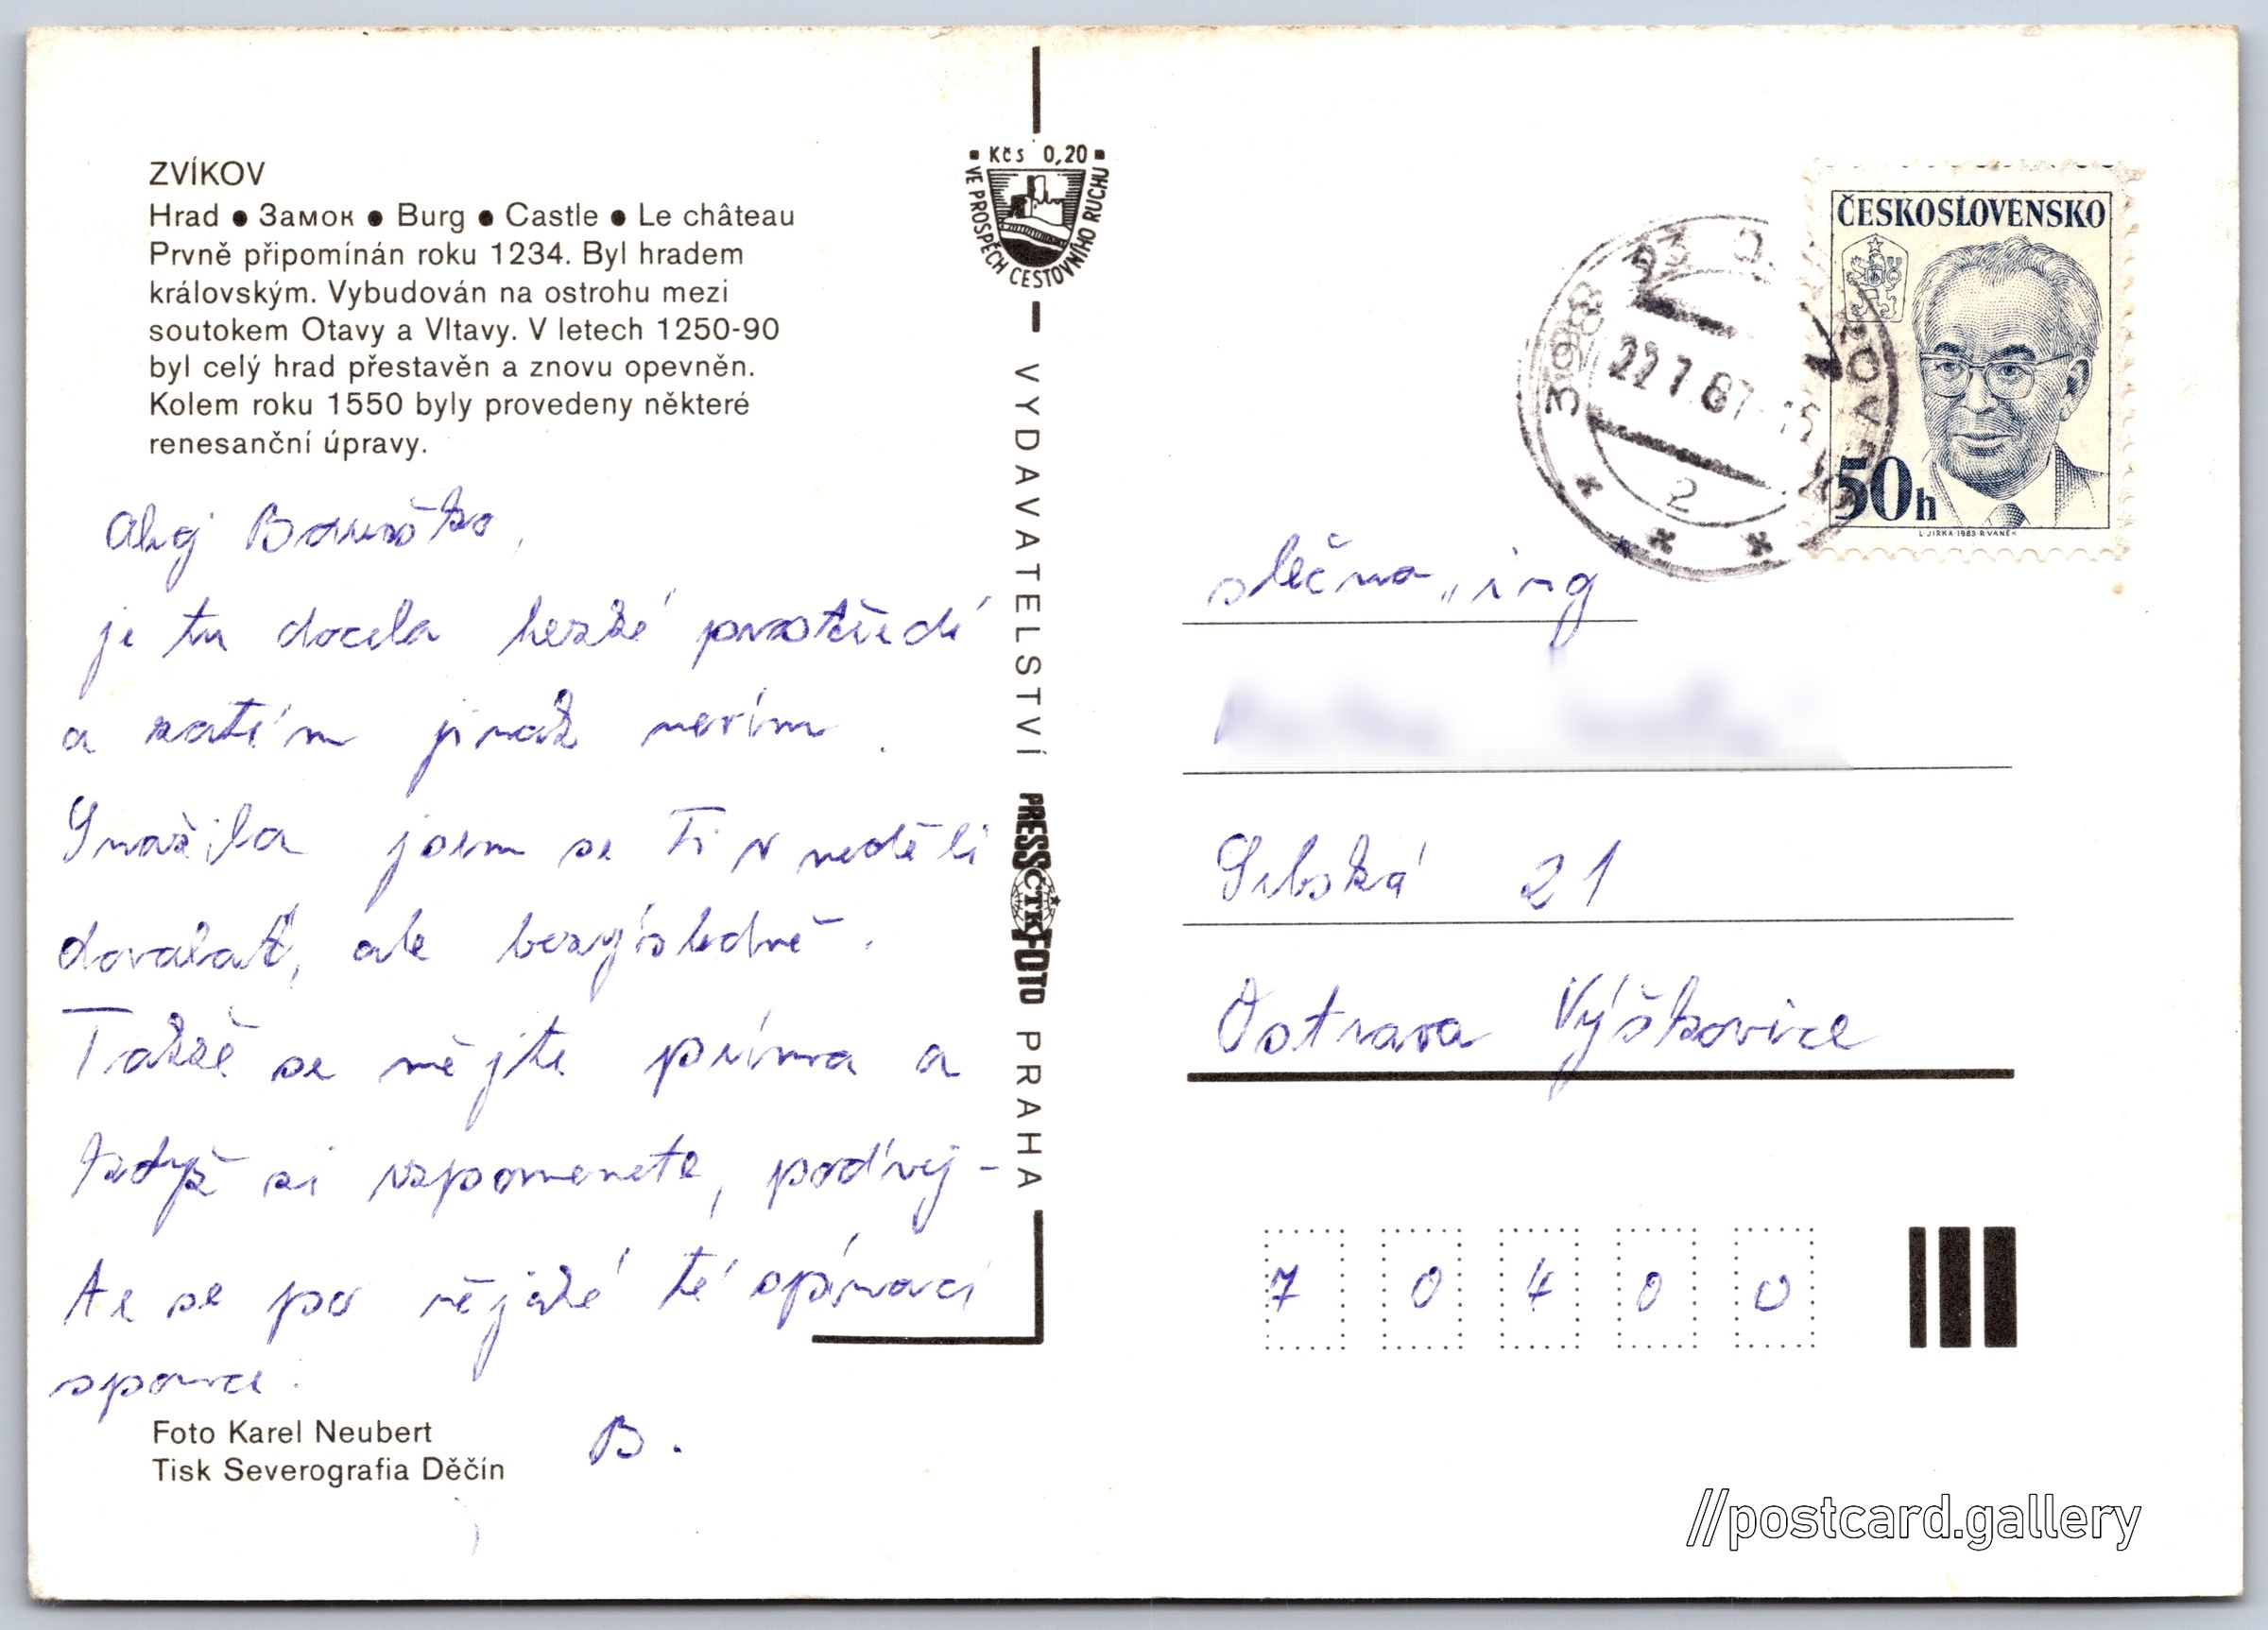 ZVÍKOV
Hrad ● Замок ● Burg ● Castle ● Le château
Prvně připomínán roku 1234. Byl hradem
královským. Vybudován na ostrohu mezi
soutokem Otavy a Vltavy. V letech 1250-90
byl celý hrad přestavěn a znovu opevněn.
Kolem roku 1550 byly provedeny některé
renesanční úpravy.
Ahoj
je tu docela hezké prostředí
a zatím jinak nevím.
Snažila jsem se Ti v neděli
dovolat, ale bezvýsledně.
Takže se mějte príma a
když si vzpomenete, podívej-
te se po nějaké té
B.
Foto Karel Neubert
Tisk Severografia Děčín
Kčs 0,20
VE PROSPĚCH CESTOVNÍHO RUCHU
VYDAVATELSTVÍ PRESSFOTO PRAHA
ČTK
398 93
22.7.87-15
2
ČESKOSLOVENSKO
50h
L.JIRKA·1983·R.VANĚK
slečna „ing"
Srbská 21
Ostrava Výškovice
7 0 4 0 0
//postcard.gallery